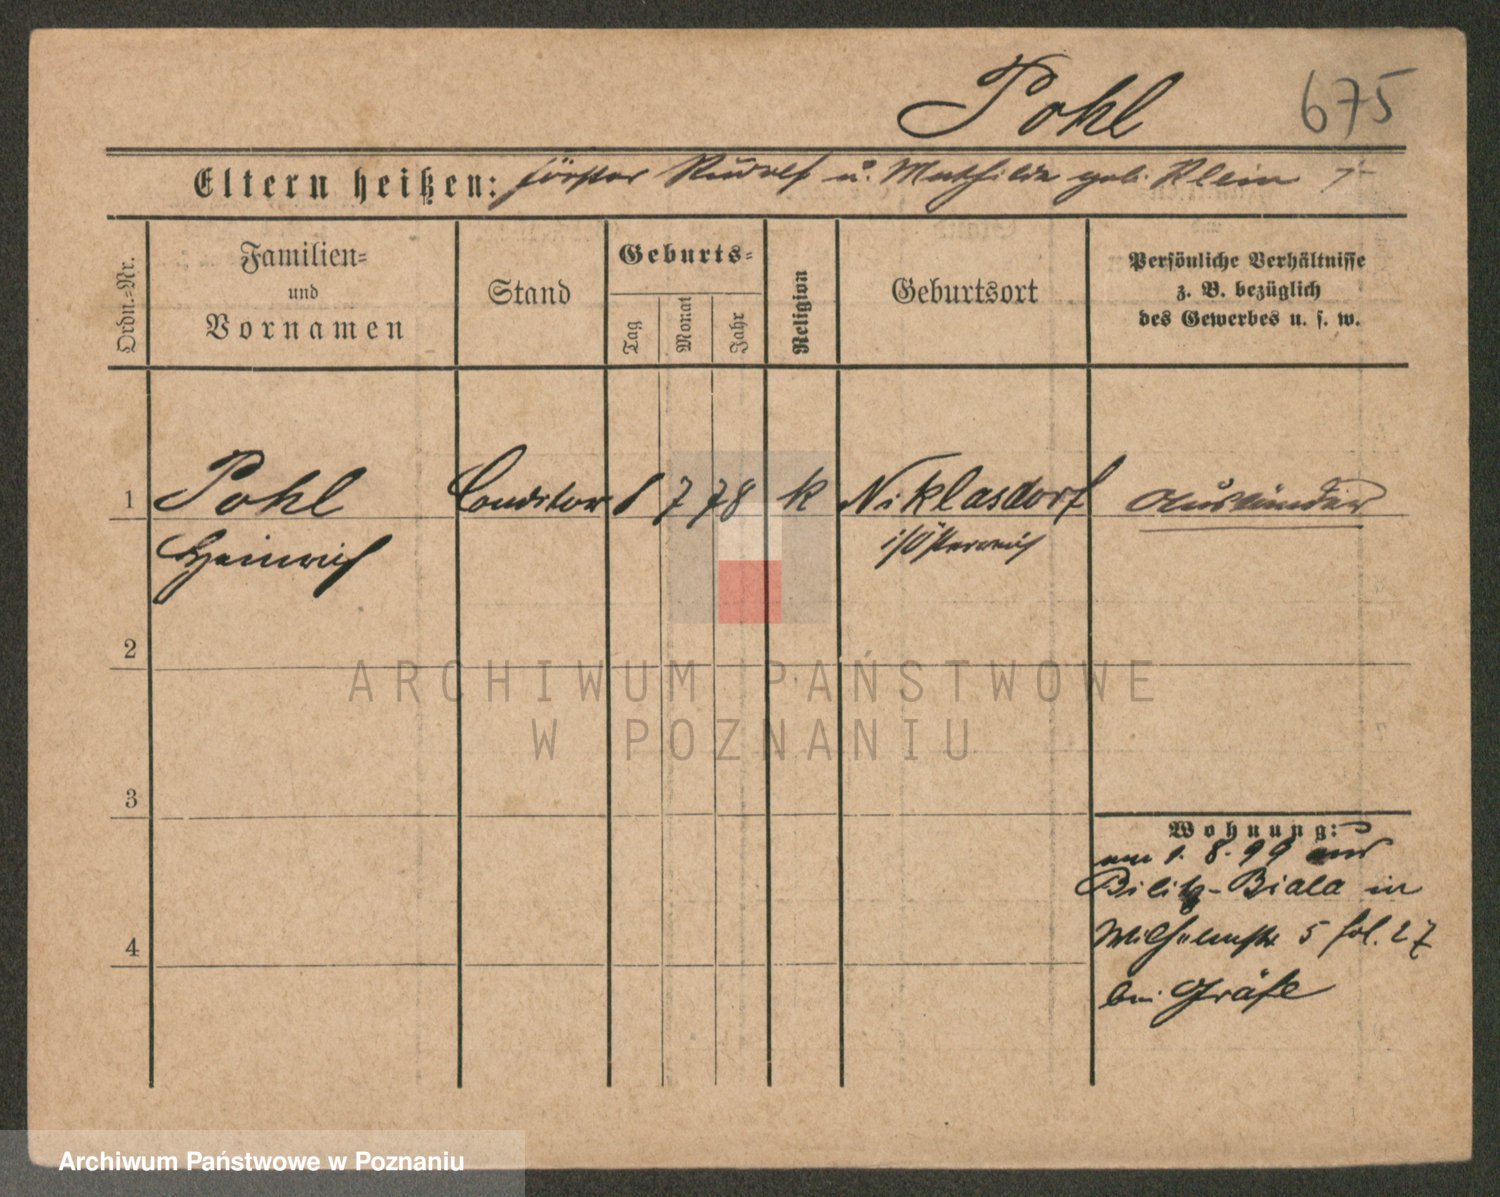 Pohl 675
Eltern heißen: Förster Rudolf u. Mathilde geb. Klein
Ordn.-Nr.
Familien-
und
Vornamen
Stand
Geburts-
Tag
Monat
Jahr
Religion
Geburtsort
Persönliche Verhältnisse
z. B. bezüglich
des Gewerbes u. s. w.
1 Pohl Conditor 8 7 78 k Niklasdorf Ausländer
Heinrich i/Österreich
2
ARCHIWUM PAŃSTWOWE
W POZNANIU
3
Wohnung:
am 1. 8. 99 aus
Bilitz-Biala in
4 Wilhelmstr. 5 fol. 27
bei Gräfe
Archiwum Państwowe w Poznaniu